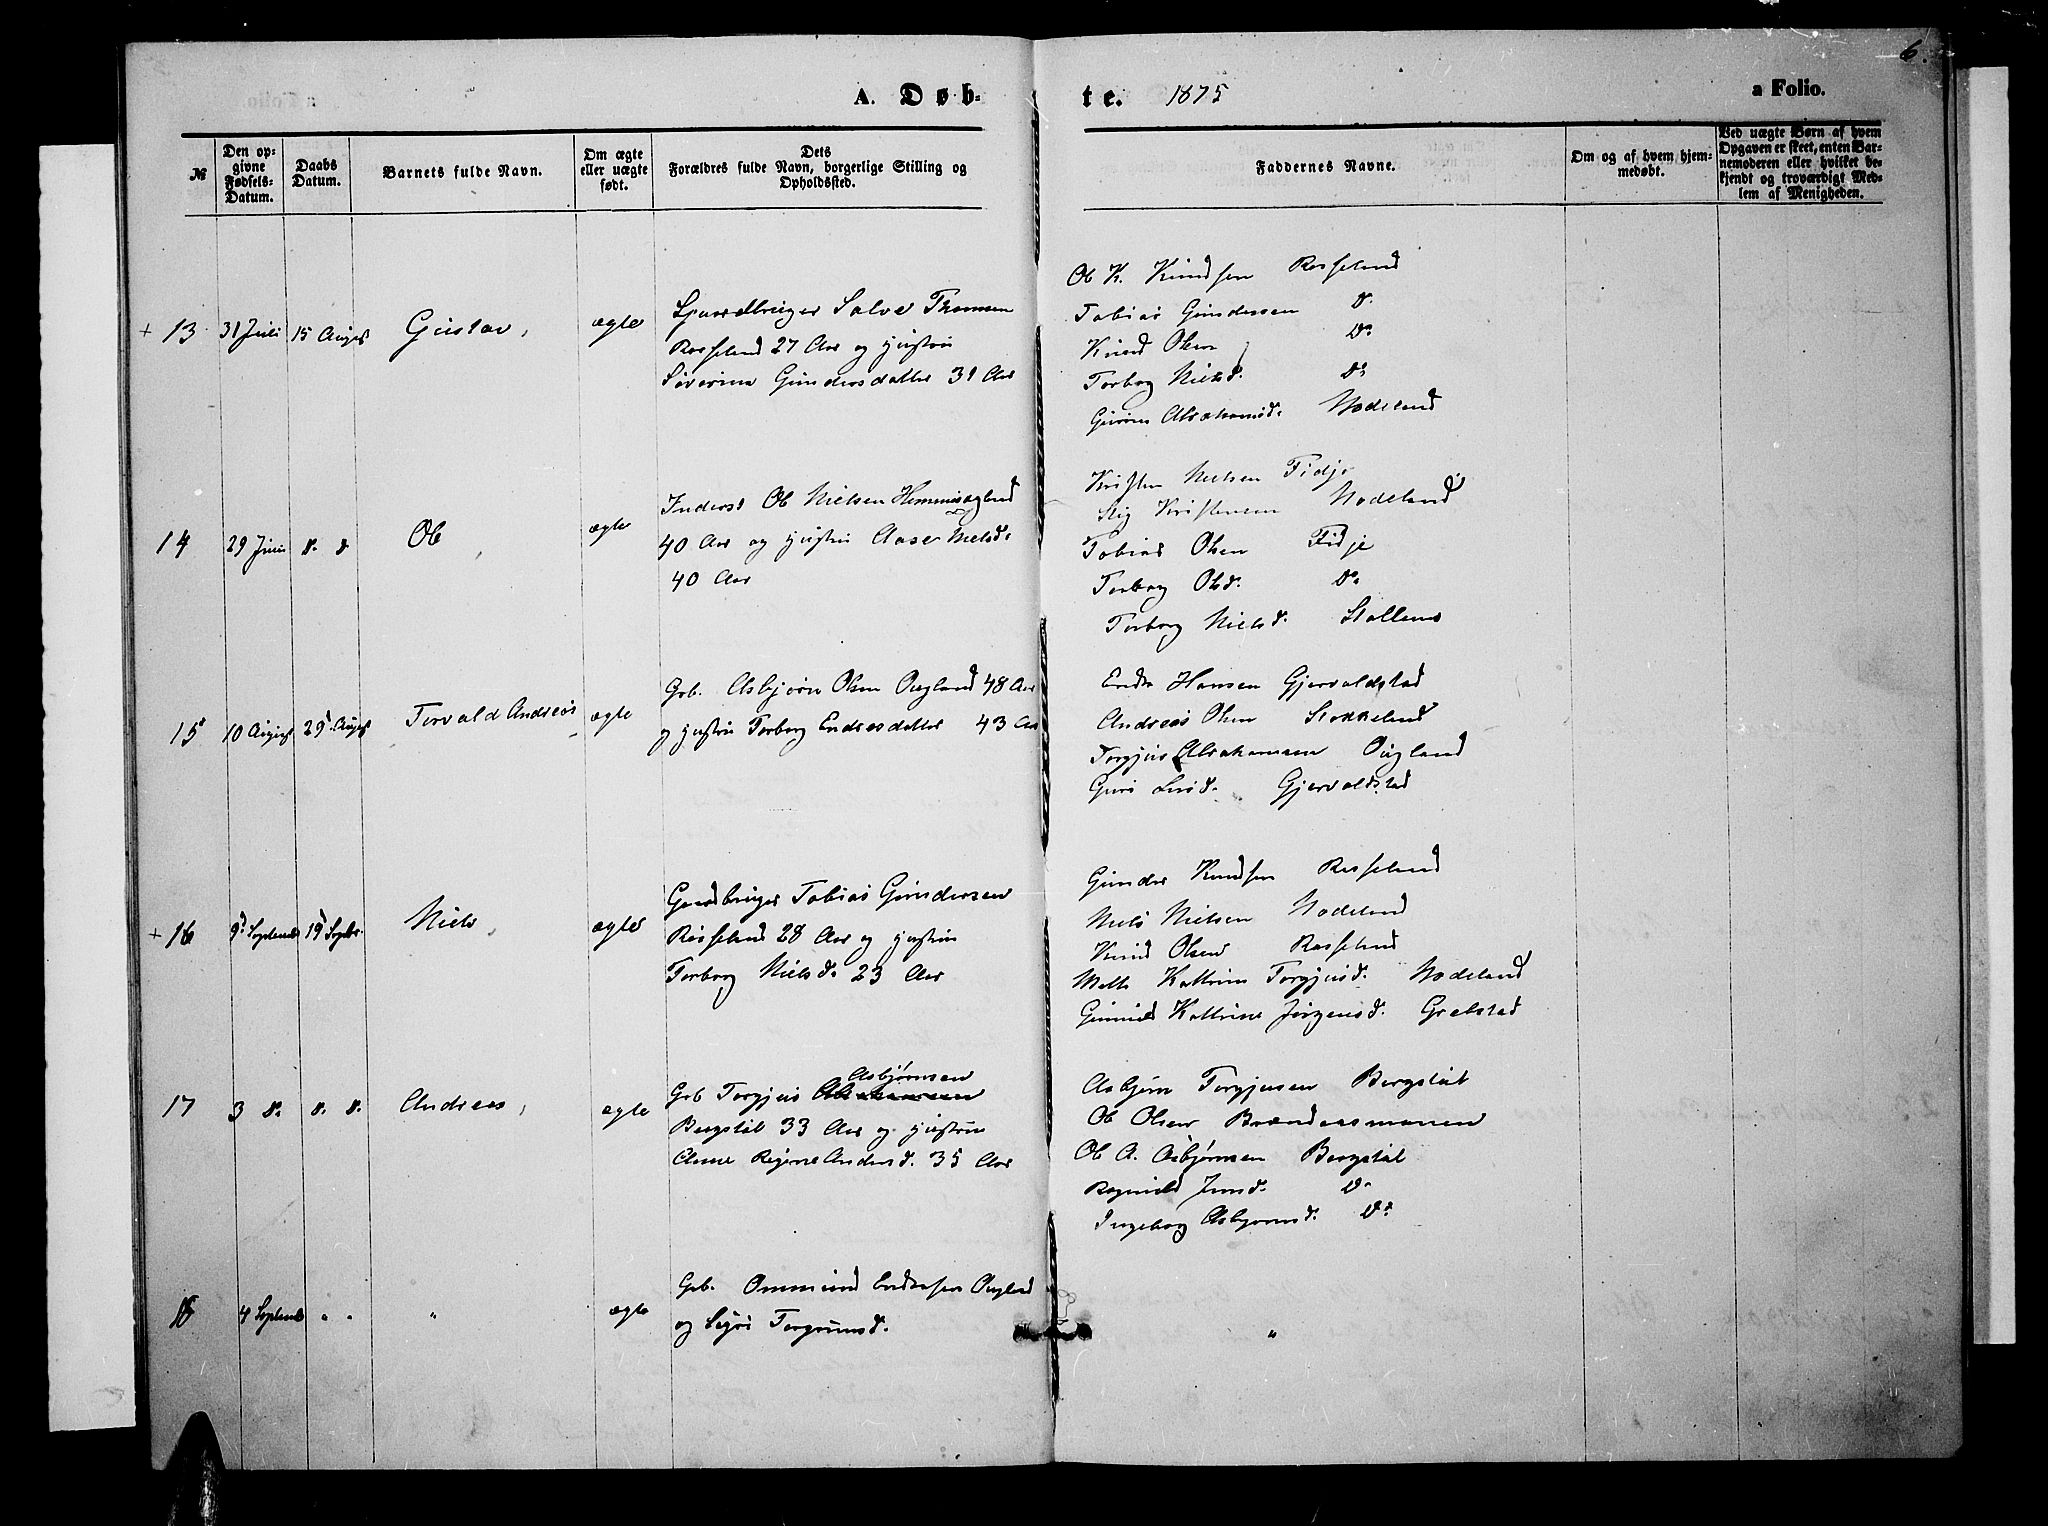 6.
A. Døb- te. 1875 a Folio.
№
Den opgivne Fødsels-Datum.
Daabs Datum.
Barnets fulde Navn.
Om ægte eller uægte født.
Dets Forældres fulde Navn, borgerlige Stilling og Opholdssted.
Faddernes Navne.
Om og af hvem hjemmedøbt.
Ved uægte Børn af hvem Opgaven er skeet, enten Barnemoderen eller hvilket bekjendt og troværdigt Medlem af Menigheden.
+ 13 31 Juli 15 August Gustav, ægte
Salve Thomsen
Rosseland 27 Aar og Hustru
Severine Gundersdatter 31 Aar
Ole K. Knudsen Rosseland
Tobias Gundersen do
Knud Olsen do
Torborg Nielsd. do
Abrahamsd. Nodeland
14 29 Juni d. d. Ole ægte
Inderst Ole Nielsen
40 Aar og Hustru Aase Nielsd.
40 Aar
Kristen Nielsen Fidje
Stig Kristensen Nodeland
Tobias Olsen Fidje
Torborg Olsd. do
Torborg Nielsd. Stallemo
15 10 August 29 August Torvald Andreas ægte
Grb. Asbjørn Olsen Augland 48 Aar
og Hustru Torborg Endresdatter 43 Aar
Endre Hansen Gjervoldstad
Andreas Olsen Stokkeland
Torgjus Abrahamsen Augland
Guri Gjervoldstad
+ 16 9de Septemb 19de Septbr. Niels, ægte
Gaardbruger Tobias Gundersen
Rosseland 28 Aar og Hustru
Torborg Nielsd. 23 Aar
Gunder Knudsen Rosseland
Niels Nielsen Nodeland
Knud Olsen Rosseland
Mette Kathrine Torgjusd. Nodeland
Gunild Kathrine Jørgensd. Grebstad
17 3 d. d. d. Andreas, ægte
Asbjørnsen
Grb Torgjus Abrahamsen
Bergstøl 33 Aar og Hustru
Anne Regine Andersd. 35 Aar
Asbjørn Torgjusen Bergstøl
Ole Olsen Brændaasmonen
Ole A. Asbjørnsen Bergstøl
Ragnild Jensd. do
Ingeborg Asbjørnsd. do
18 4 Septemb " " " ægte
Grb. Ommund Endresen Augland
og Sigri Torgrimsd.
"